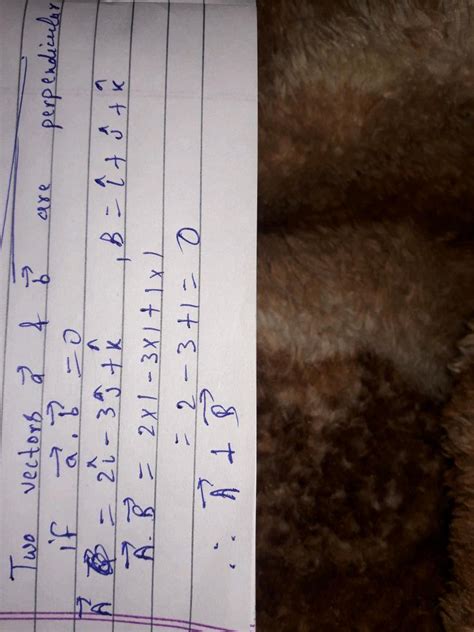 Two vectors a⃗ & b⃗ are perpendicular
if a⃗.b⃗ = 0
A⃗ = 2î - 3ĵ + k̂ , B = î + ĵ + k̂
A⃗.B⃗ = 2x1 - 3x1 + 1x1
= 2 - 3 + 1 = 0
∴ A⃗ ⊥ B⃗